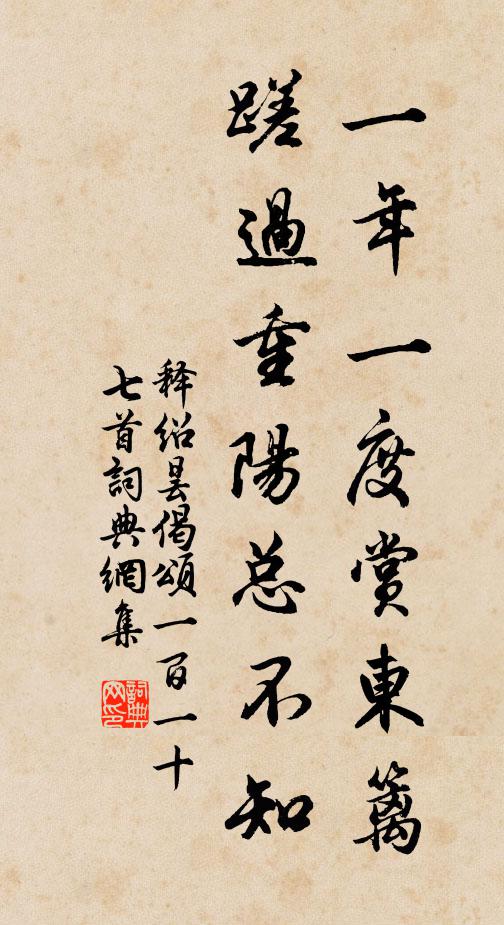 一年一度賞東籬
蹉過重陽总不知
释紹曇偈頌一百一十
七首詞典網集
詞典网印